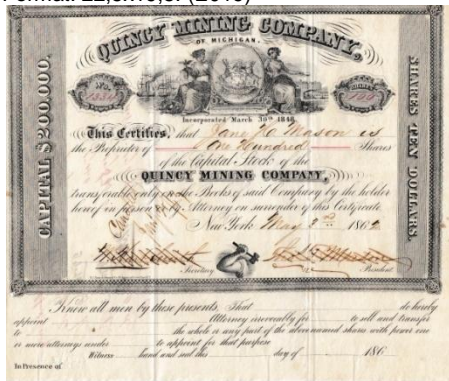 QUINCY MINING COMPANY,
OF MICHIGAN.
No.
SHARES
100
CAPITAL $200,000.
SHARES TEN DOLLARS.
Incorporated March 30th 1848
This Certifies, that Jane D. Mason is
the Proprietor of One Hundred Shares
of the Capital Stock of the
QUINCY MINING COMPANY,
transferable only on the Books of said Company by the holder
hereof in person or by Attorney on surrender of this Certificate.
New York May 3rd 1862
Secretary
President
Know all men by these presents, That do hereby
appoint Attorney irrevocably for to sell and transfer
to the whole or any part of the above named shares with power one
or more attorneys under to appoint for that purpose
Witness hand and seal this day of 186
In Presence of